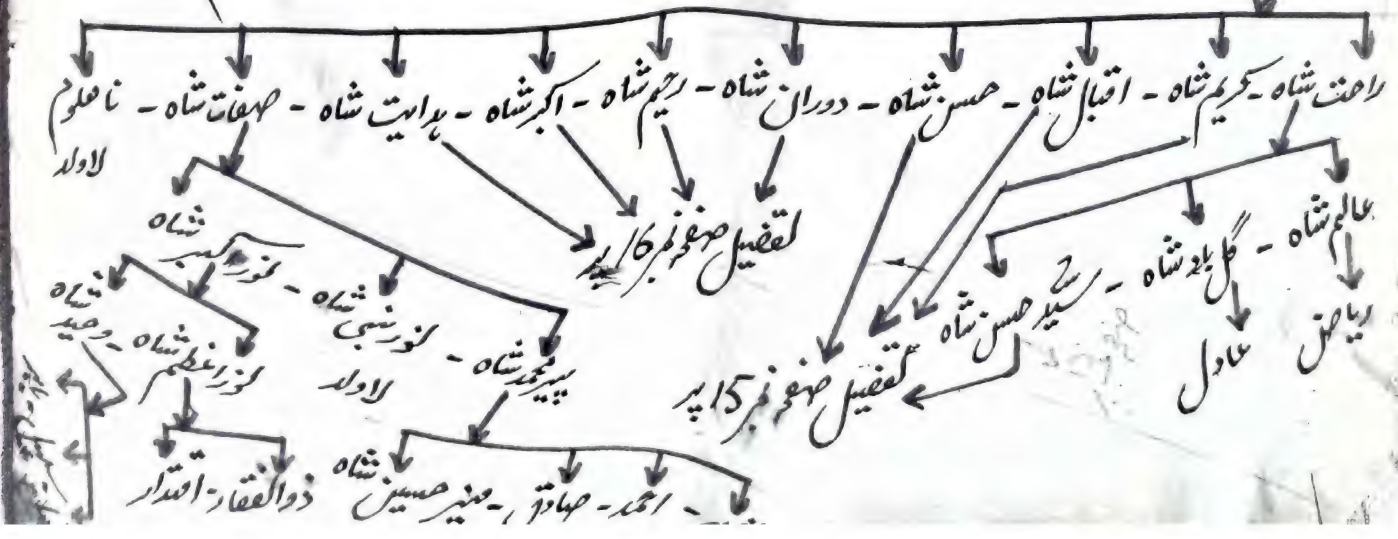 راحت شاہ - کریم شاہ - اقبال شاہ - حسن شاہ - دوران شاہ - رحیم شاہ - اکبر شاہ - ہدایت شاہ - صفات شاہ - نامعلوم
لاولد
عالم شاہ - گل بادشاہ - سید حسن شاہ
ریاض
عادل
تفصیل صفحہ نمبر 16 پر
تفصیل صفحہ نمبر 15 پر
نور کبیر شاہ - نور نبی شاہ - پیر محمد شاہ
لاولد
نور اعظم شاہ - وحید شاہ
ذوالفقار - اقتدار
احمد - صادق - منیر حسین شاہ